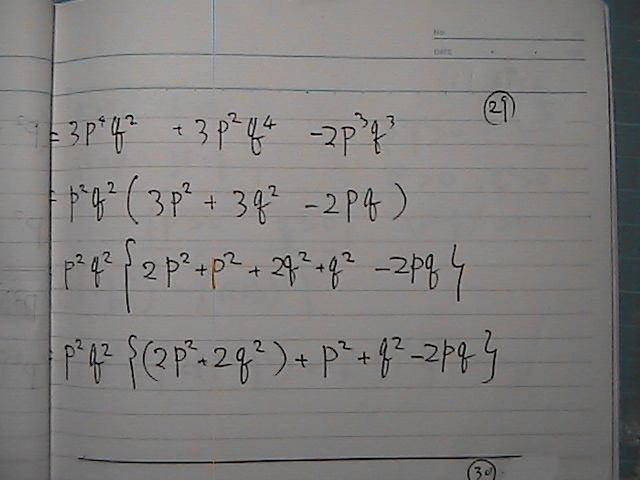 No.
DATE
29
= 3p⁴q² + 3p²q⁴ - 2p³q³
= p²q² ( 3p² + 3q² - 2pq )
p²q² { 2p² + p² + 2q² + q² - 2pq }
= p²q² { (2p² + 2q²) + p² + q² - 2pq }
30